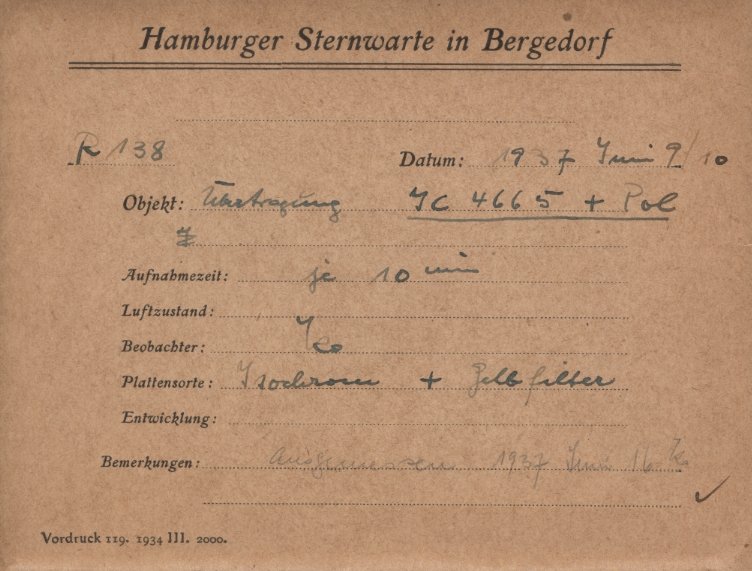 Hamburger Sternwarte in Bergedorf
R 138 Datum: 1937 Juni 9/10
Objekt: Übertragung JC 4665 + Pol
Aufnahmezeit: je 10 min
Luftzustand:
Beobachter:
Plattensorte: Isochrom + Gelbfilter
Entwicklung:
Bemerkungen: ausgemessen 1937 Juni 16
Vordruck 119. 1934 III. 2000.